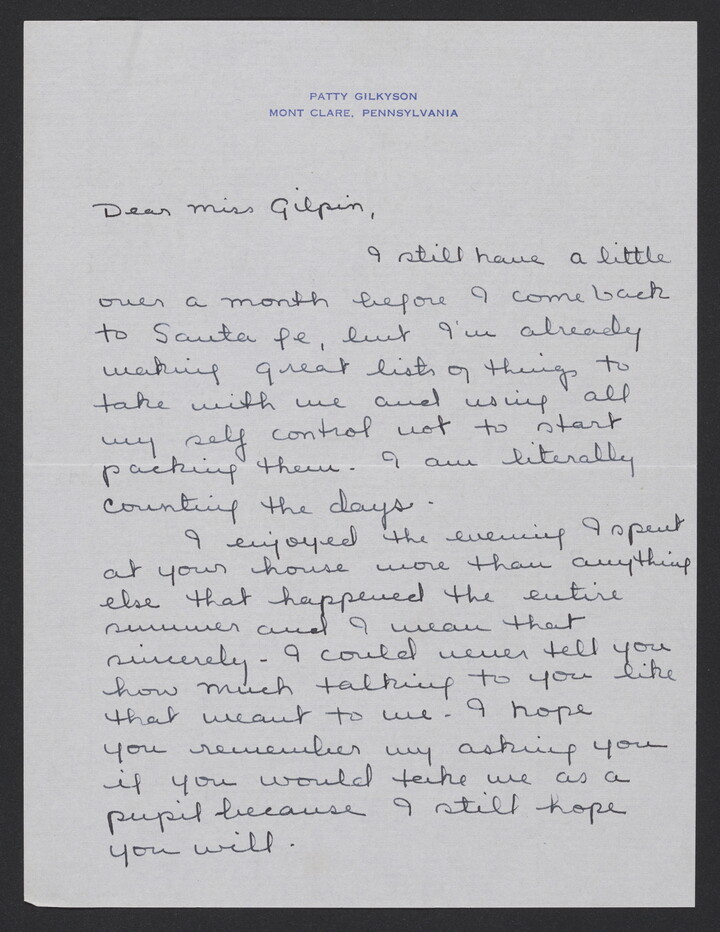 PATTY GILKYSON
MONT CLARE, PENNSYLVANIA
Dear Miss Gilpin,
I still have a little
over a month before I come back
to Santa Fe, but I'm already
making great lists of things to
take with me and using all
my self control not to start
packing them. I am literally
counting the days.
I enjoyed the evening I spent
at your house more than anything
else that happened the entire
summer and I mean that
sincerely. I could never tell you
how much talking to you like
that meant to me. I hope
you remember my asking you
if you would take me as a
pupil because I still hope
you will.